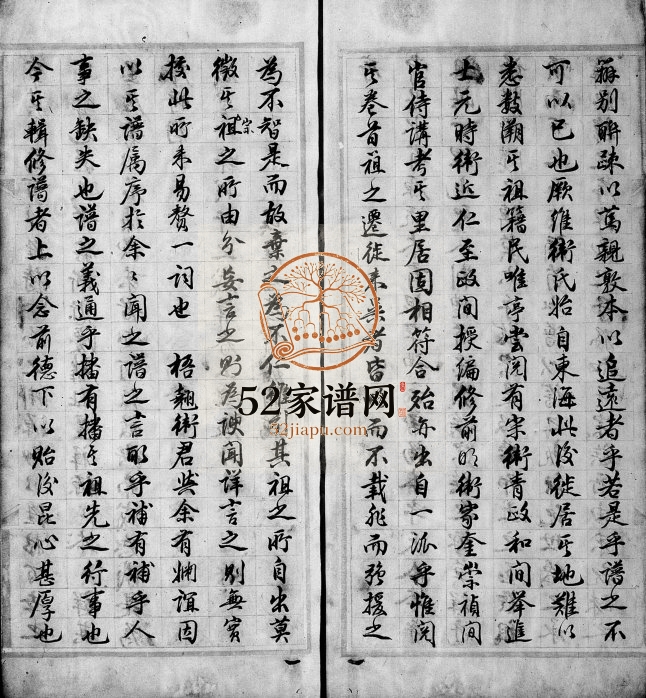 辨别联疎以萬親敦本以追遠者乎若是乎譜之不
可以已也厥维衛氏始自東海此後徙居其地難以
悉数溯其祖籍民唯亭嘗阅有宋衛青政和間举進
士元時衛近仁至政間授编修前明衛家奎崇禎間
官侍講考其里居固相符合殆亦出自一派乎惟阅
其卷首祖之遷徙未 者皆 而不载非而强援之
為不智是而故棄之為不仁 其祖之所自出莫
徵其祖宗之所由分妄言之则為谀闻詳言之则無實
按此所未易赘一词也 梧翘衛君与余有姻誼因
以其譜属序於余〻闻之譜之言酌乎補有補乎人
事之缺失也譜之義通乎播有播其祖先之行事也
今其輯修譜者上以念前德下以贻後昆心甚厚也
52家谱网
52jiapu.com